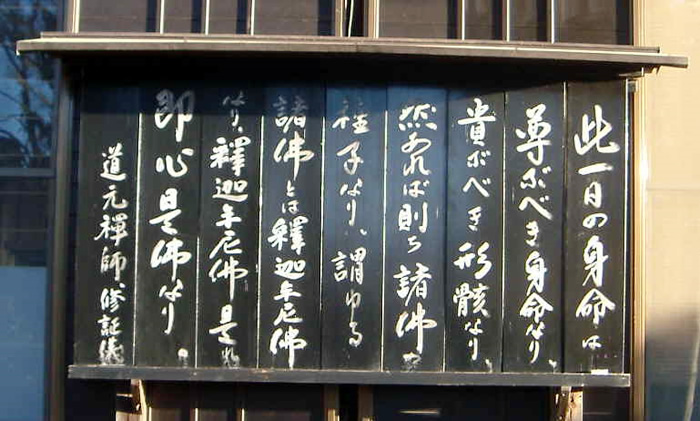 此一日の身命は
尊ぶべき身命なり、
貴ぶべき形骸なり、
然あれば則ち諸佛の
種子なり、謂ゆる
諸佛とは釋迦牟尼佛
なり、釋迦牟尼佛是れ
即心是佛なり。
道元禪師、修証儀